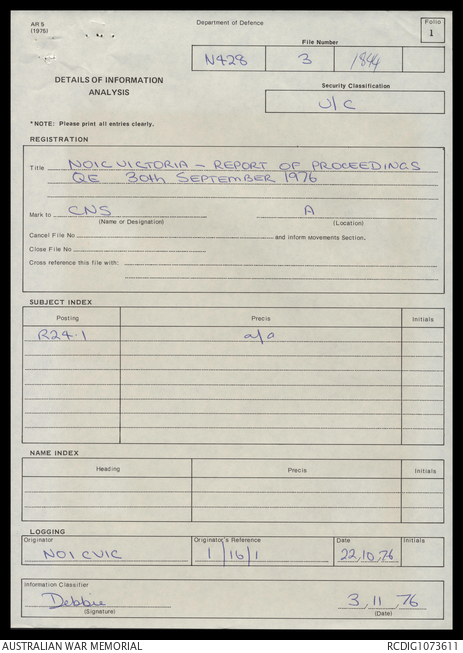 AR 5
(1975)
Department of Defence
Folio
1
File Number
N428 3 1844
DETAILS OF INFORMATION
ANALYSIS
Security Classification
U/C
*NOTE: Please print all entries clearly.
REGISTRATION
Title NOIC VICTORIA - REPORT OF PROCEEDINGS
QE 30th SEPTEMBER 1976
Mark to CNS A
(Name or Designation) (Location)
Cancel File No and inform Movements Section.
Close File No
Cross reference this file with:
SUBJECT INDEX
Posting Precis Initials
R24-1 a/a
NAME INDEX
Heading Precis Initials
LOGGING
Originator Originator's Reference Date Initials
NOICVIC 1/16/1 22,10,76
Information Classifier
Debbie 3,11,76
(Signature) (Date)
AUSTRALIAN WAR MEMORIAL RCDIG1073611